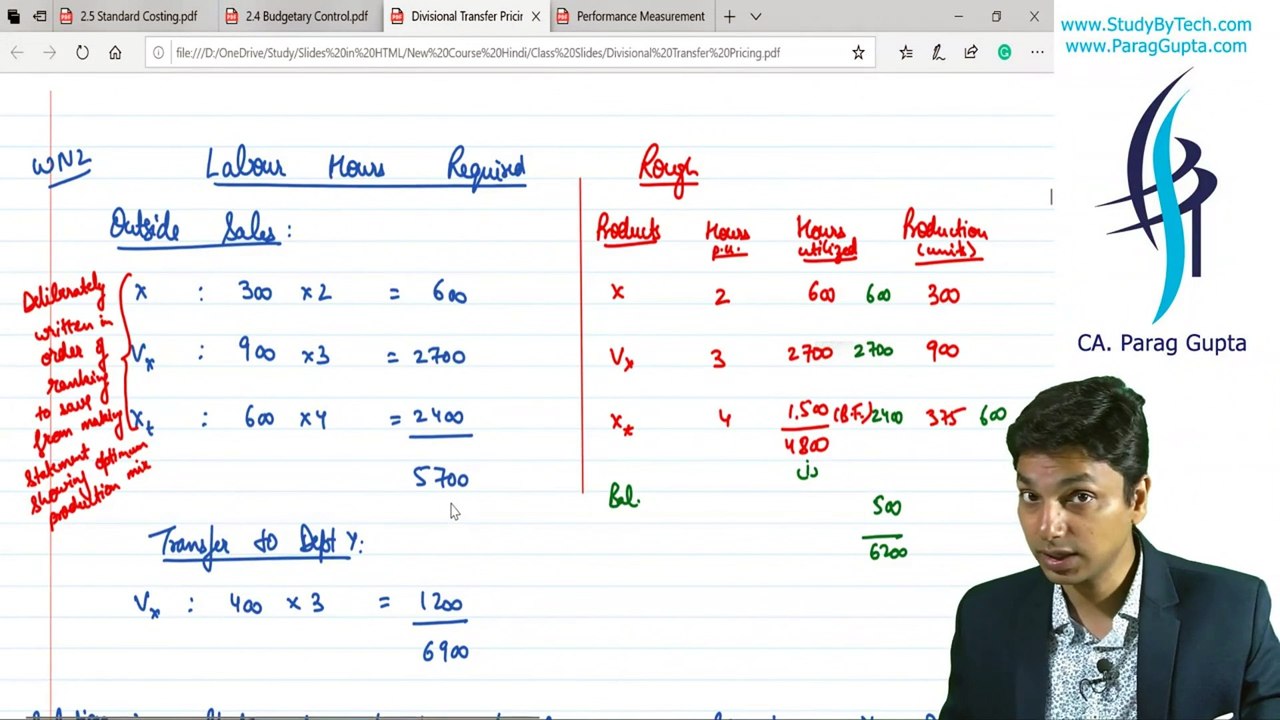 2.5 Standard Costing.pdf
2.4 Budgetary Control.pdf
Divisional Transfer Pricin
Performance Measurement
file:///D:/OneDrive/Study/Slides%20in%20HTML/New%20Course%20Hindi/Class%20Slides/Divisional%20Transfer%20Pricing.pdf
www.StudyByTech.com
www.ParagGupta.com
CA. Parag Gupta
WN2 Labour Hours Required
Outside Sales:
X : 300 x2 = 600
Vx : 900 x3 = 2700
Xt : 600 x4 = 2400
5700
Deliberately
written in
order of
ranking
to save
from making
statement
showing optimum
production mix
Transfer to Dept Y:
Vx : 400 x 3 = 1200
6900
Rough
Products Hours p.u. Hours utilized Production (units)
X 2 600 600 300
Vx 3 2700 2700 900
Xt 4 1,500 (B.F.) 2400 375 600
4800
Bal. 500
6200